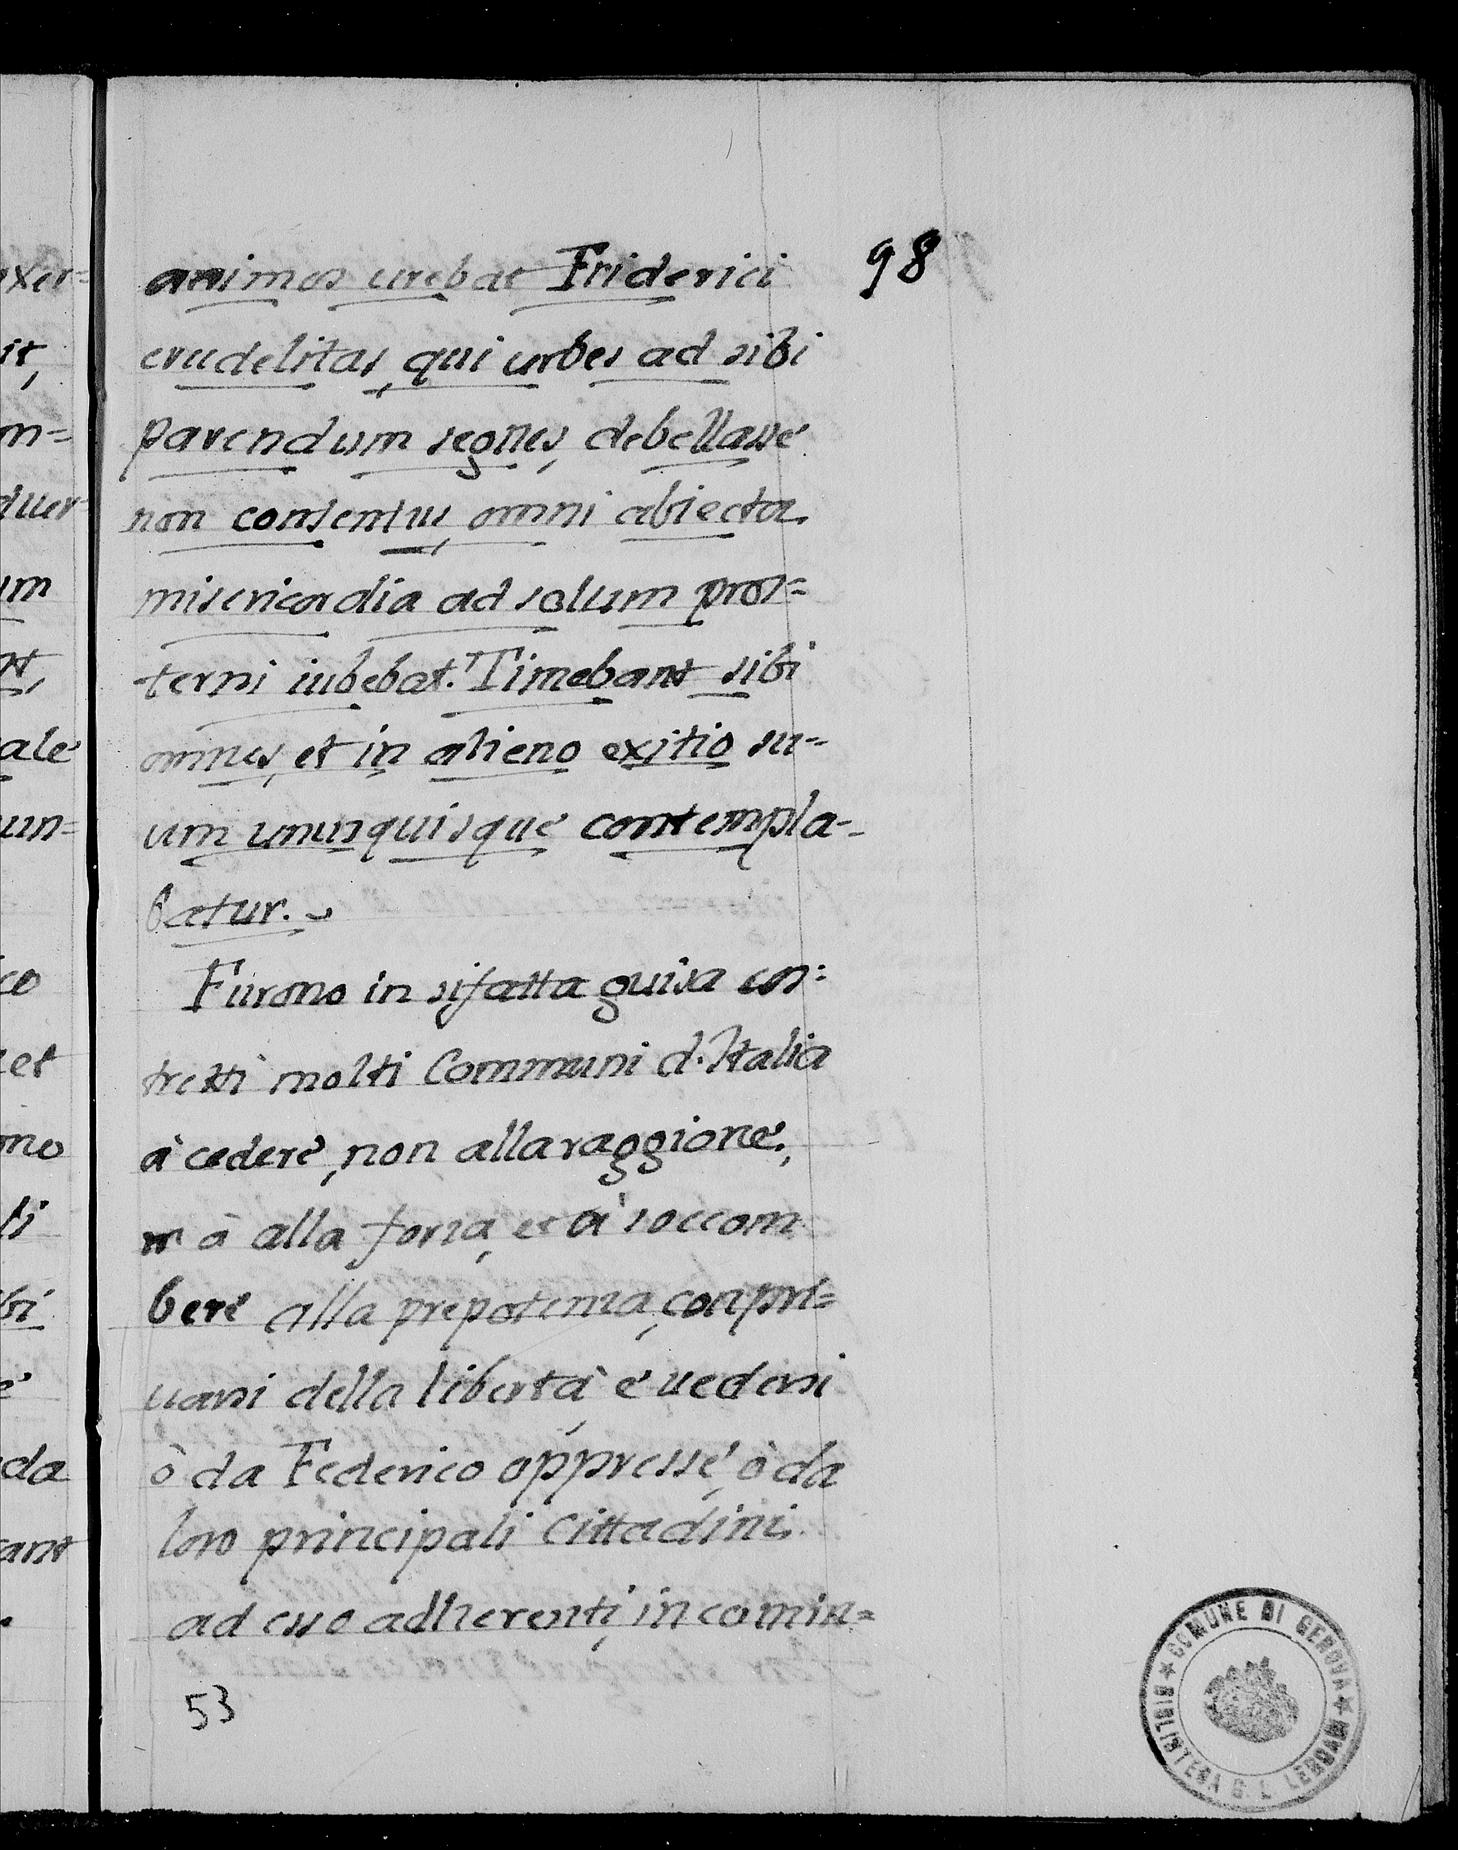 98
animos urebat Friderici
crudelitas, qui urbes ad sibi
parendum segnes, debellasse
non contentus, omni abiecta
misericordia ad solum pros=
terni iubebat. Timebant sibi
omnes, et in alieno exitio su=
um unusquisque contempla-
batur.
Furono in sifatta guisa cos=
tretti molti Communi d'Italia
à cedere, non alla raggione,
mà alla forza, et à soccom
bere alla prepotenza, con pri=
uarsi della libertà, e uedersi
ò da Federico oppresse, ò da
loro principali Cittadini
ad esso adherenti, incomin=
53
COMUNE DI GENOVA
BIBLIOTECA G. L. LERCARI